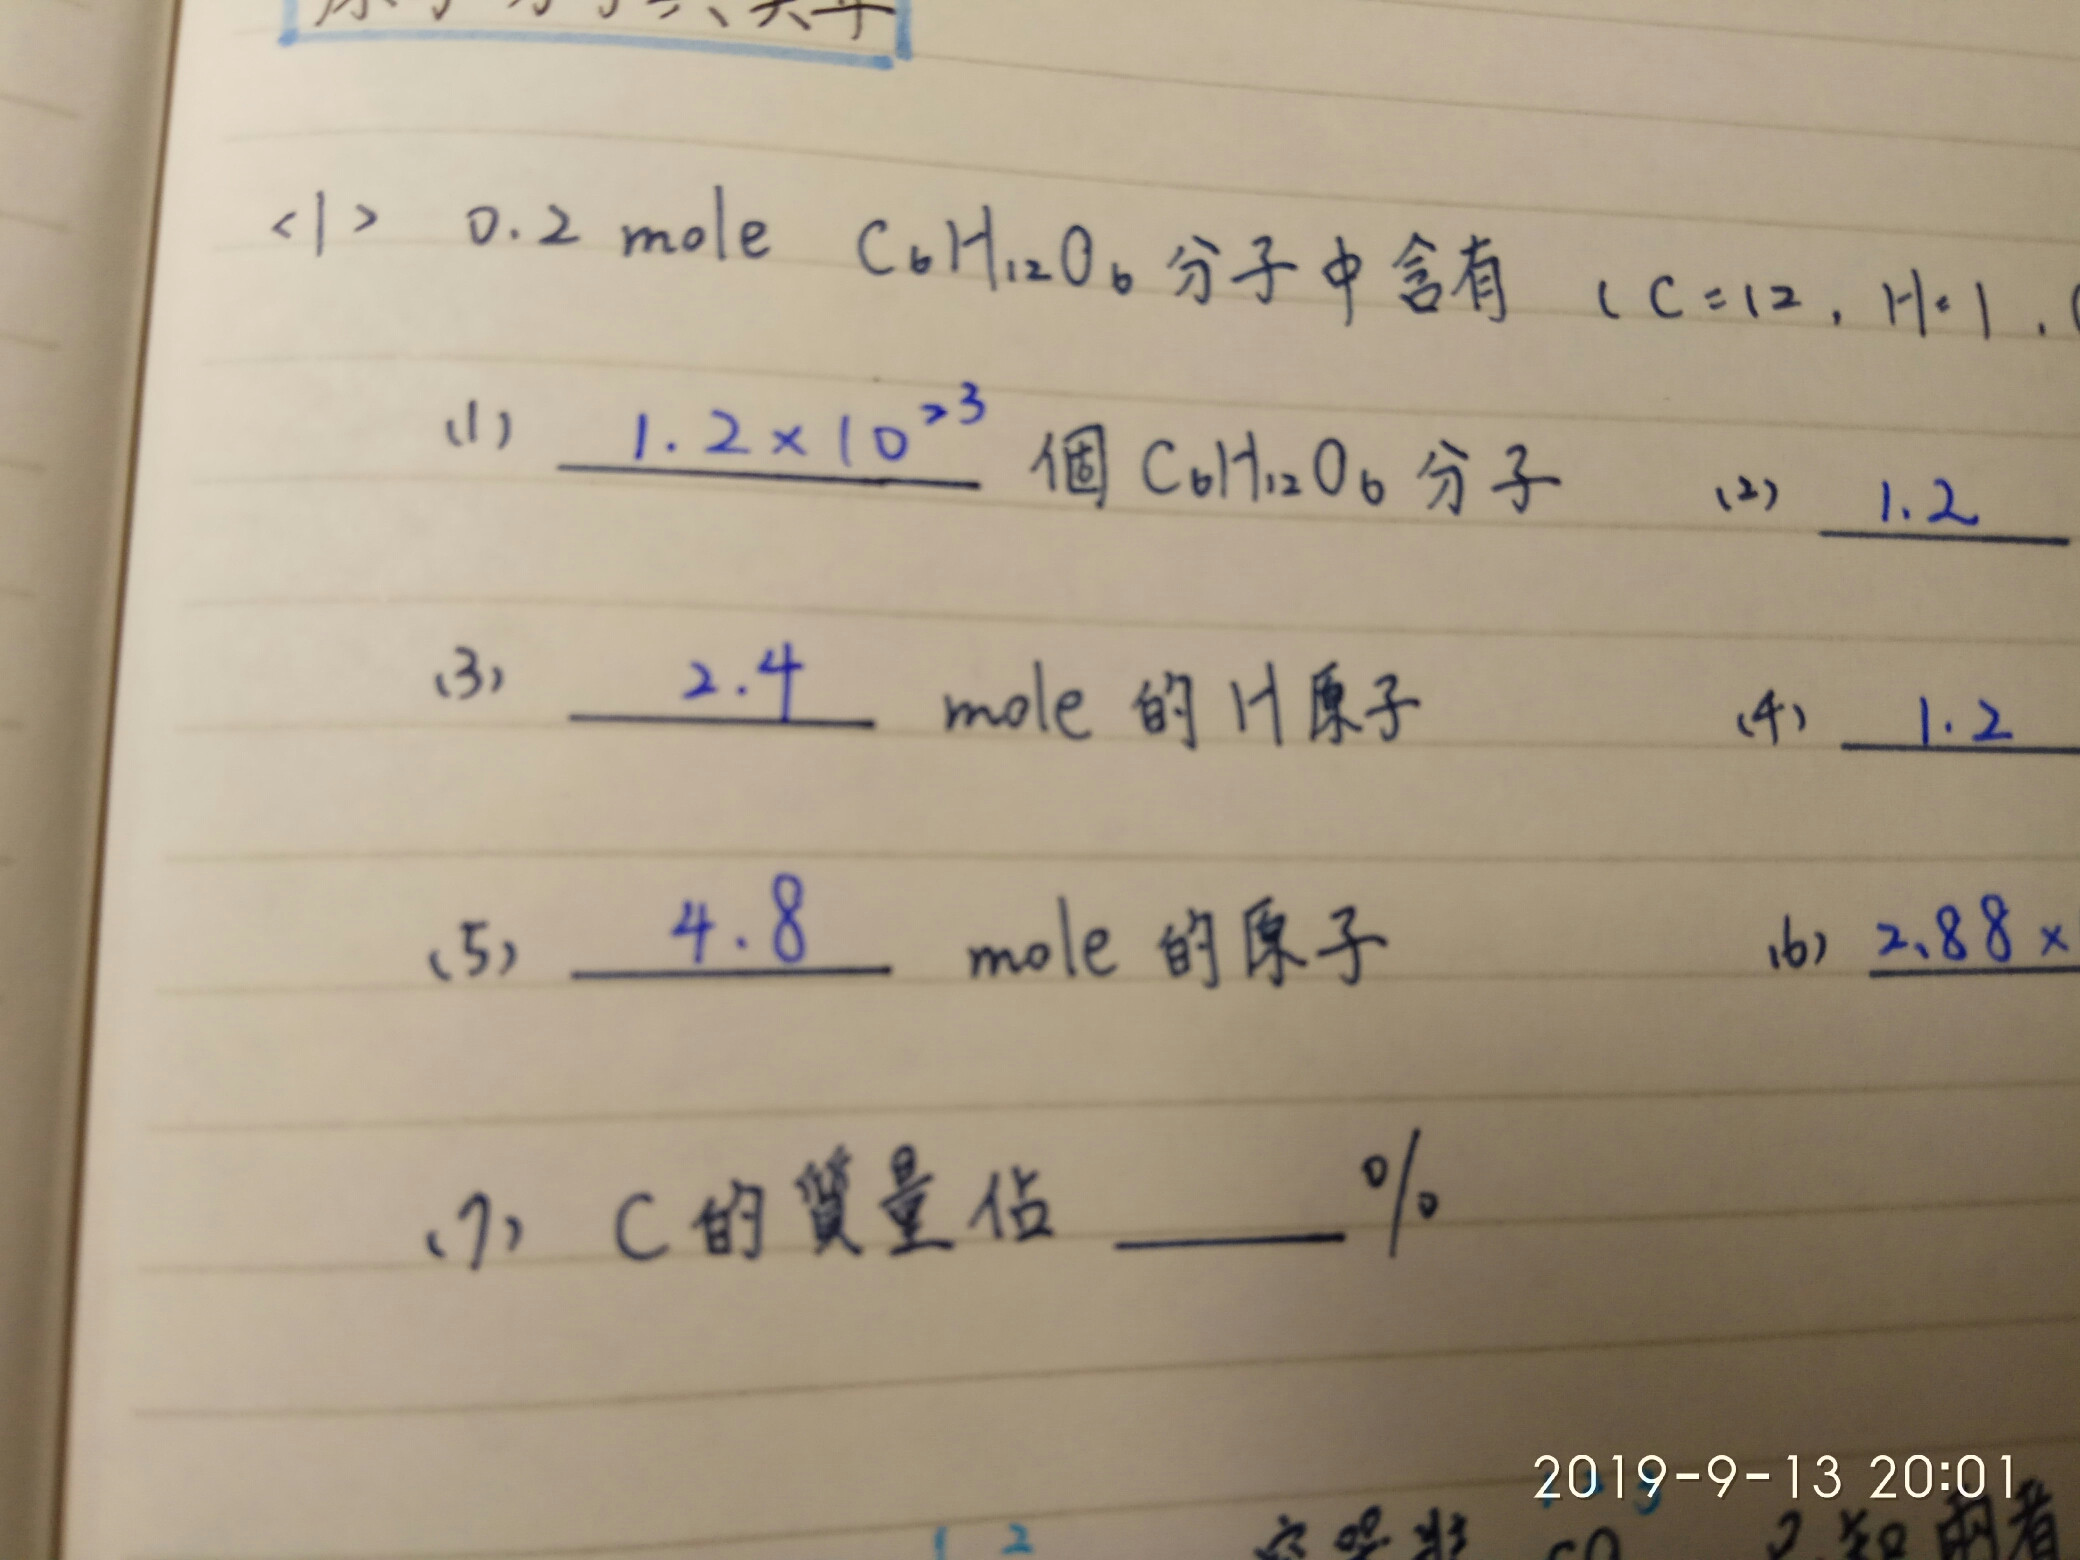 <1> 0.2 mole C₆H₁₂O₆ 分子中含有 (C=12, H=1,
(1) 1.2×10²³ 個 C₆H₁₂O₆ 分子 (2) 1.2
(3) 2.4 mole 的 H 原子 (4) 1.2
(5) 4.8 mole 的原子 (6) 2.88×
(7) C 的質量佔 ___ %
2019-9-13 20:01
1 2